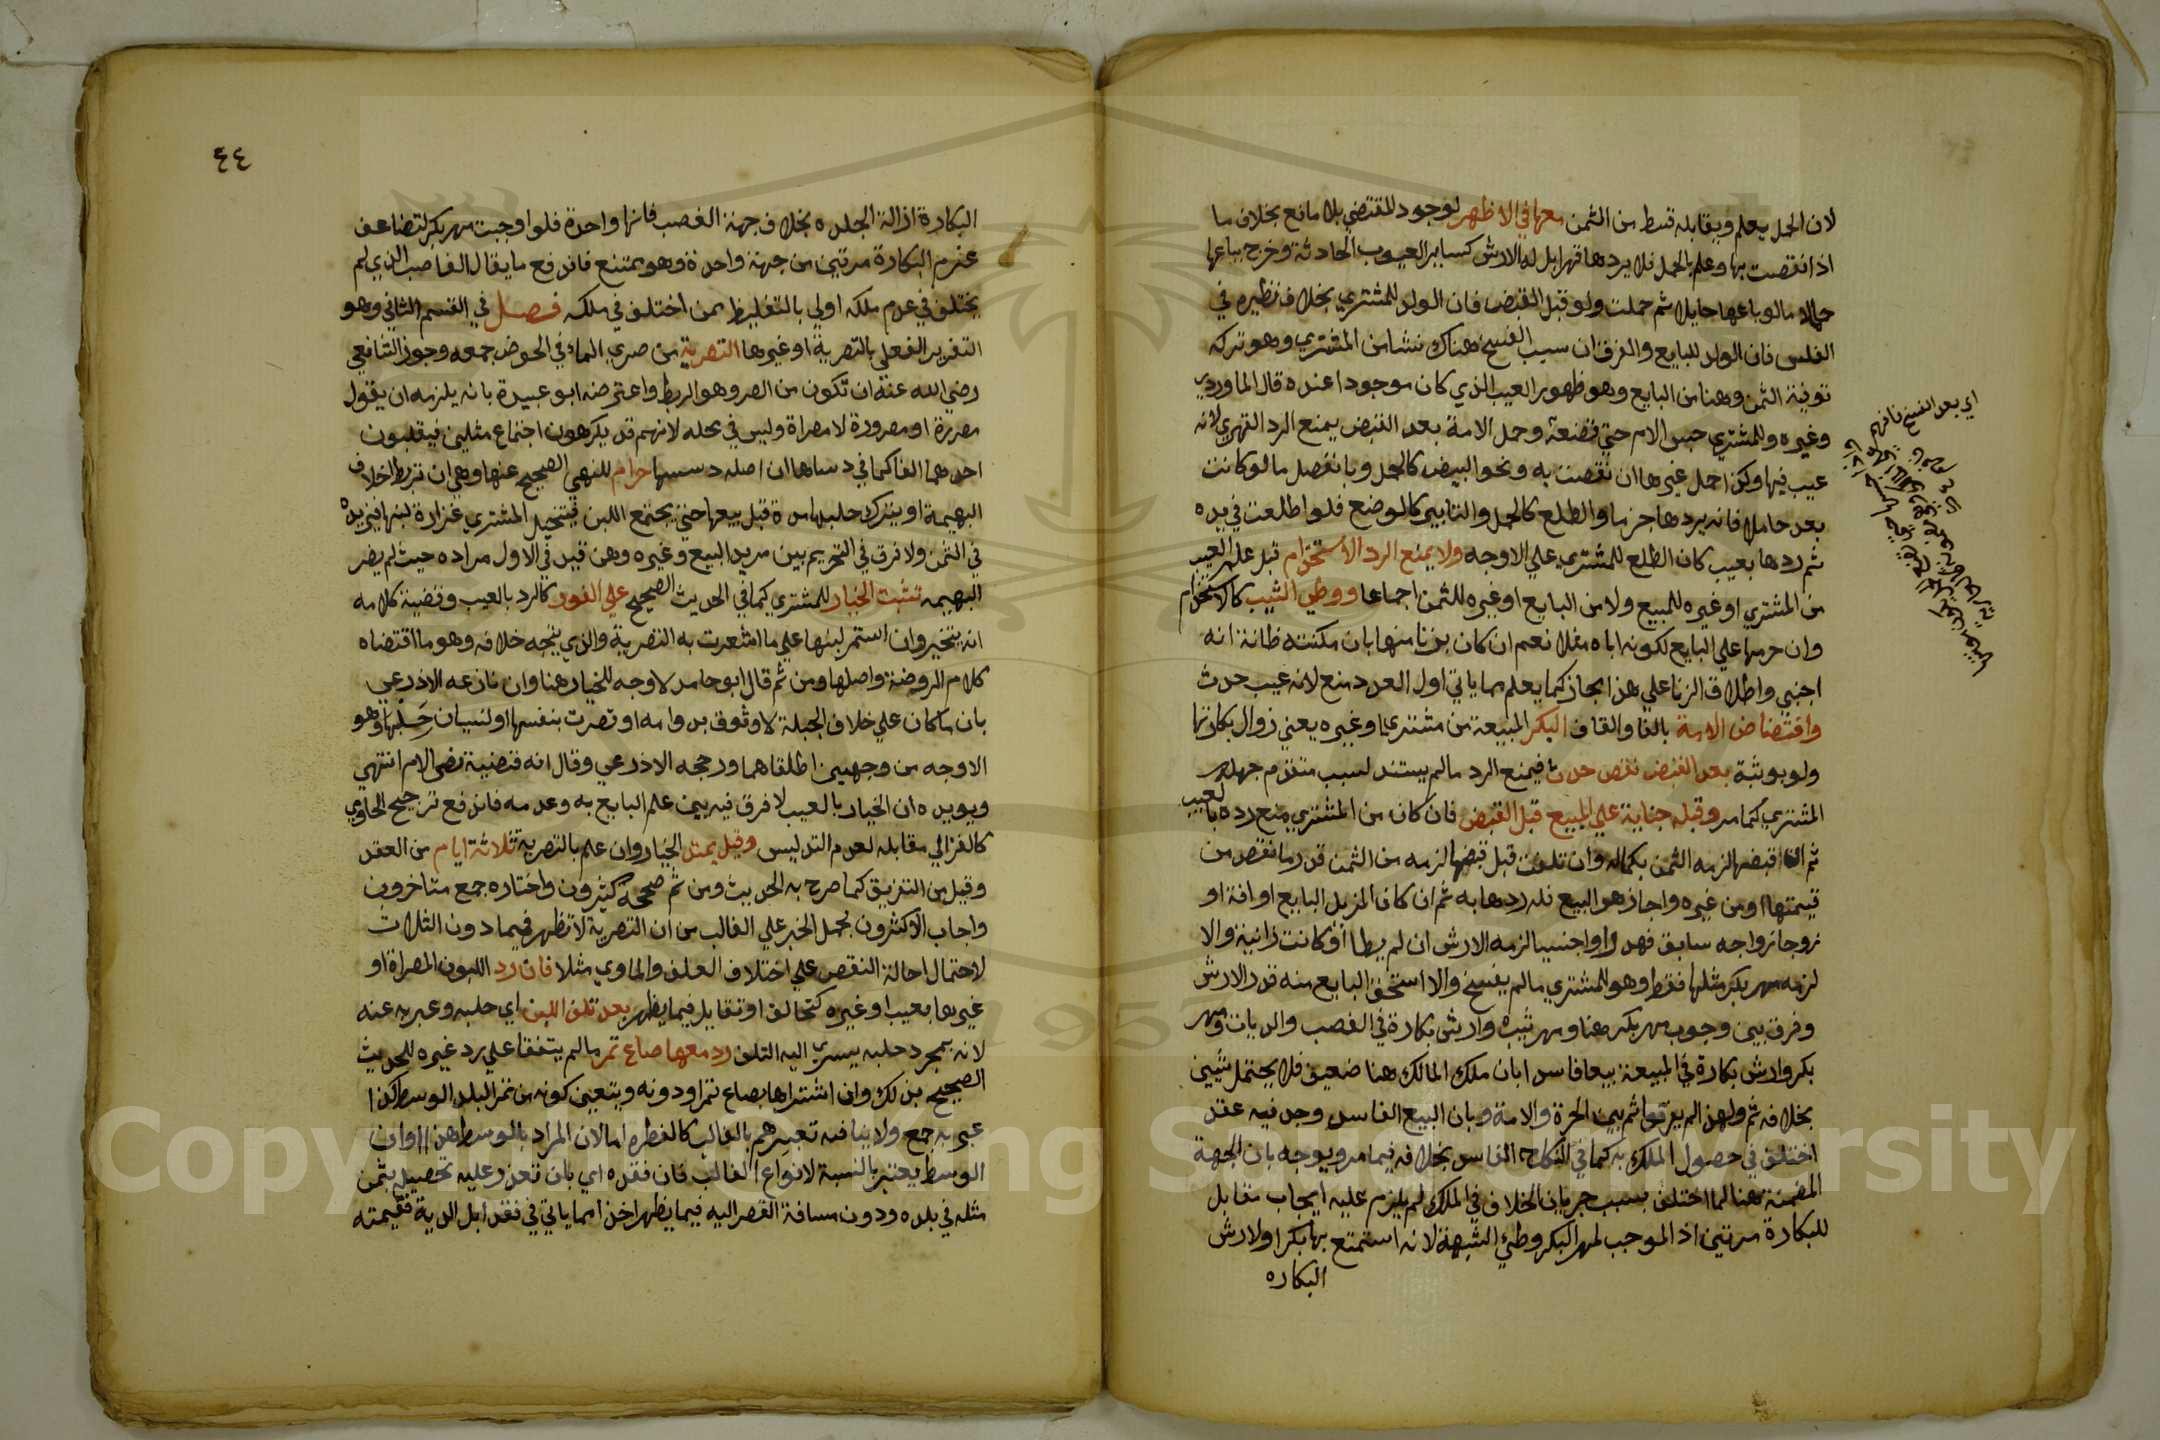 لان الحمل يعلم ويقابله قسط من الثمن معها في الاظهر لوجود المقتضي بلا مانع بخلاف ما
اذا نقصت بها وعلم بالحمل فلا يردها قهرا بل له الارش كساير العيوب الحادثة وخرج بباعها
حاملا ما لو باعها حايلا ثم حملت ولو قبل القبض فان الولد للمشتري بخلاف نظيره في
الفلس فان الولد للبايع والفرق ان سبب الفسخ هناك نشا من المشتري وهو تركه
توفية الثمن وهنا من البايع وهو ظهور العيب الذي كان موجودا عنده قال الماوردي
وغيره وللمشتري حبس الام حتي تضعه وحمل الامة بعد القبض يمنع الرد القهري لانه
عيب فيها وكذا حمل غيرها ان نقصت به ونحو البيض كالحمل وبانفصل ما لو كانت
بعد حاملا فانه يردها جزما والطلع كالحمل والتابير كالوضع فلو اطلعت في يده
ثم ردها بعيب كان الطلع للمشتري علي الاوجه ولا يمنع الرد الاستخدام قبل علم العيب
من المشتري او غيره للمبيع ولا من البايع او غيره للثمن اجماعا ووطي الثيب كالاستخدام
وان حرمها علي البايع لكونه اباه مثلا نعم ان كان بزنا منها بان مكنته ظانة انه
اجنبي واطلاق الزنا علي هذا مجاز كما يعلم مما ياتي اول العدد منع لانه عيب حدث
وافتضاض الامة بالفا والقاف البكر المبيعة من مشتري او غيره يعني زوال بكارتها
ولو بوثبة بعد القبض نقص حدث فيمنع الرد ما لم يستند لسبب متقدم جهله
المشتري كما مر وقبله جناية علي المبيع قبل القبض فان كان من المشتري منع رده بالعيب
ثم ان قبضها لزمه الثمن بكماله وان تلفت قبل قبضها لزمه من الثمن قدر ما نقص من
قيمتها او من غيره واجاز هو البيع فله ردها به ثم ان كان المزيل البايع او افة او
زوجا زواجه سابق فهدر او اجنبيا لزمه الارش ان لم يطا او كانت زانية والا
لزمه مهر بكر مثلها فقط وهو للمشتري ما لم يفسخ والا استحق البايع منه قدر الارش
وفرق بين وجوب مهر بكر هنا ومهر ثيب وارش بكارة في الغصب والديات ومهر
بكر وارش بكارة في المبيعة بيعا فاسدا بان ملك المالك هنا ضعيف فلا يحتمل شيئين
بخلافه ثم ولهذا لم يفرقوا ثم بين الحرة والامة وبان البيع الفاسد وجد فيه عقد
اختلف في حصول الملك به كما في النكاح الفاسد بخلافه فيما مر ويوجه بان الجهة
المضمنة هنا لما اختلفت بسبب جريان الخلاف في الملك لم يلزم عليه ايجاب مقابل
للبكارة مرتين اذ الموجب لمهر البكر وطئ الشبهة لانه استمتع بها بكرا ولارش
البكاره
اي بعد الفسخ فافهم
٤٤
البكارة ازالة الجلده بخلاف جهة الغصب فانها واحدة فلو اوجبت مهر بكر لتضاعف
غرم البكارة مرتين من جهة واحدة وهو ممتنع فاندفع ما يقال الغاصب الذي لم
يختلف في عدم ملكه اولي بالتغليظ ممن اختلف في ملكه فصل في القسم الثاني وهو
التغرير الفعلي بالتصرية او غيرها التصرية من صري الماء في الحوض جمعه وجوز الشافعي
رضي الله عنه ان تكون من الصر وهو الربط واعترضه ابو عبيدة بانه يلزمه ان يقول
مصررة او مصرورة لا مصراة وليس في محله لانهم قد يكرهون اجتماع مثلين فيقلبون
احدهما الفا كما في دساها ان اصله دسسها حرام للنهي الصحيح عنها وهي ان تربط اخلاف
البهيمة او يترك حلبها مدة قبل بيعها حتي يجتمع اللبن فيتخيل المشتري غزارة لبنها فيزيده
في الثمن ولا فرق في التحريم بين مريد البيع وغيره ومن قيد في الاول مراده حيث لم يضر
البهيمه تثبت الخيار للمشتري كما في الحديث الصحيح علي الفور كالرد بالعيب وقضية كلامه
انه يتخير وان استمر لبنها علي ما اشعرت به التصرية والذي يتجه خلافه وهو ما اقتضاه
كلام الروضة واصلها ومن ثم قال ابو حامد لا وجه للخيار هنا وان نازعه الاذرعي
بان ما كان علي خلاف الجبلة لا وثوق بدوامه او تصرت بنفسها او لنسيان حلبها وهو
الاوجه من وجهين اطلقاهما ورجحه الاذرعي وقال انه قضية نص الام انتهي
ويويده ان الخيار بالعيب لا فرق فيه بين علم البايع به وعدمه فاندفع ترجيح الحاوي
كالغزالي مقابله لعدم التدليس وقيل يمتد الخيار وان علم بالتصرية ثلاثة ايام من العقد
وقيل من التفريق كما صرح به الحديث ومن ثم صححه كثيرون واختاره جمع متاخرون
واجاب الاكثرون بحمل الخبر علي الغالب من ان التصرية لا تظهر فيما دون الثلاث
لاحتمال احالة النقص علي اختلاف العلف والماوي مثلا فان رد اللبون المصراة او
غيرها بعيب او غيره كتحالف او تقايل فيما يظهر بعد تلف اللبن اي حلبه وعبر به عنه
لانه بمجرد حلبه يسري اليه التلف رد معها صاع تمر ما لم يتفقا علي رد غيره للحديث
الصحيح بذلك وان اشتراها بصاع تمر او دونه ويتعين كونه من تمر البلد الوسط كذا
عبر به جمع ولا ينافيه تعبيرهم بالغالب كالفطره اما لان المراد بالوسط هذا او ان
الوسط يعتبر بالنسبة لانواع الغالب فان فقده اي بان تعذر عليه تحصيله بثمن
مثله في بلده ودون مسافة القصر اليه فيما يظهر اخذا مما ياتي في فقد ابل الدية فقيمته